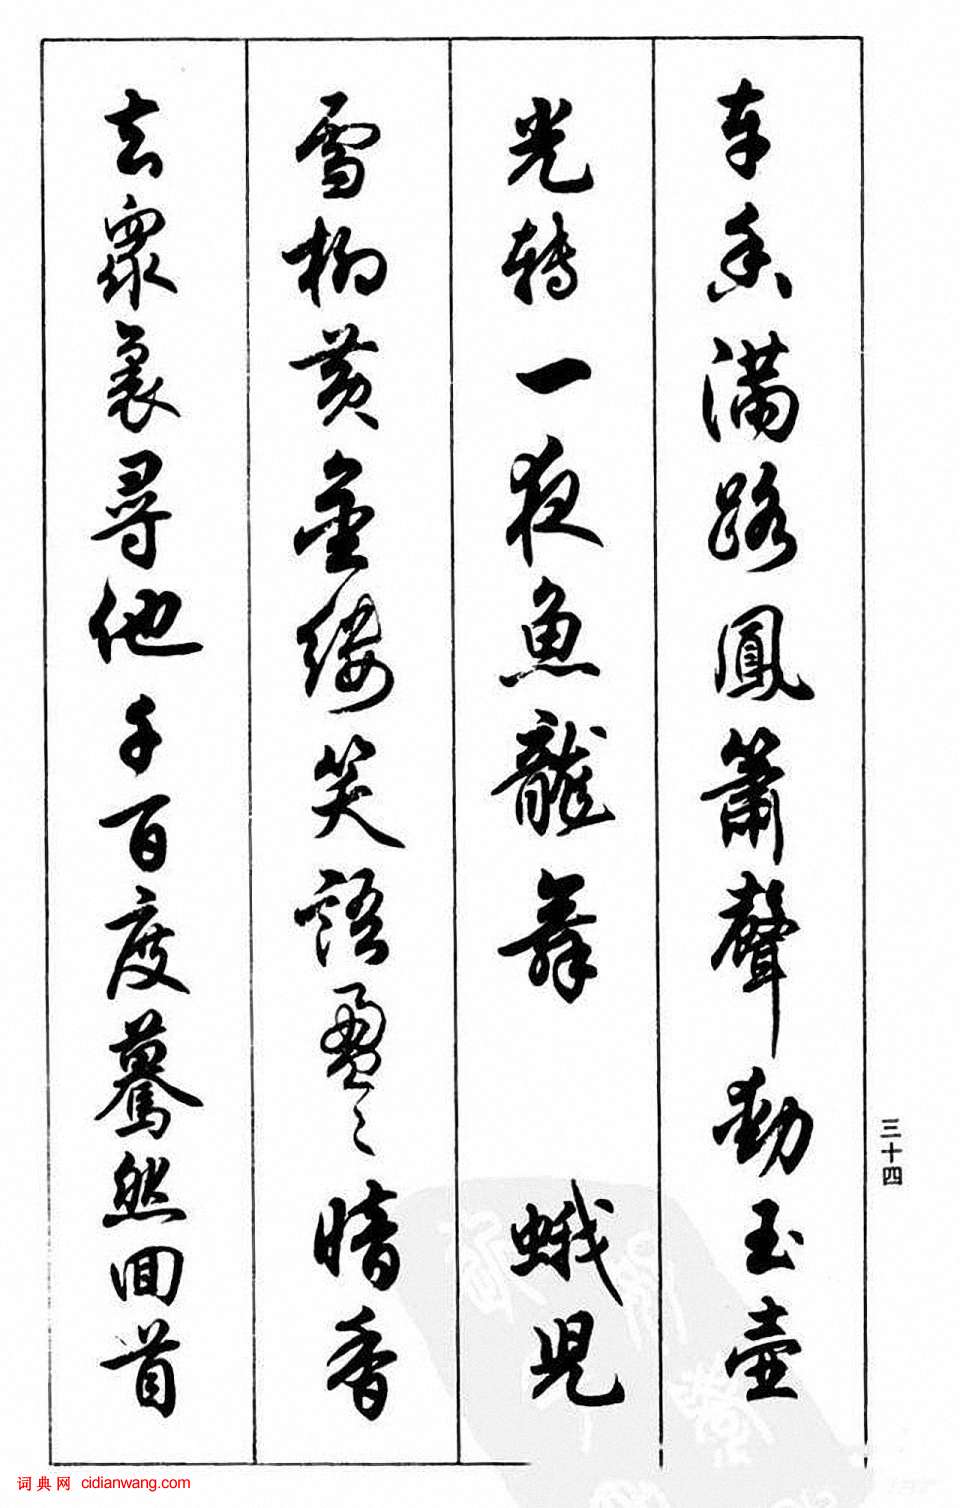 車香滿路鳳簫聲動玉壺
光轉一夜魚龍舞　蛾兒
雪柳黃金縷笑語盈〻暗香
去眾裏尋他千百度驀然回首
三十四
词典网 cidianwang.com